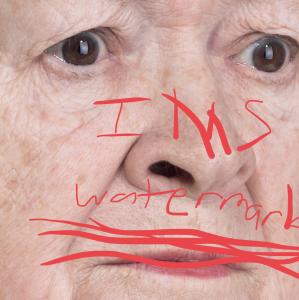 IMS
watermark